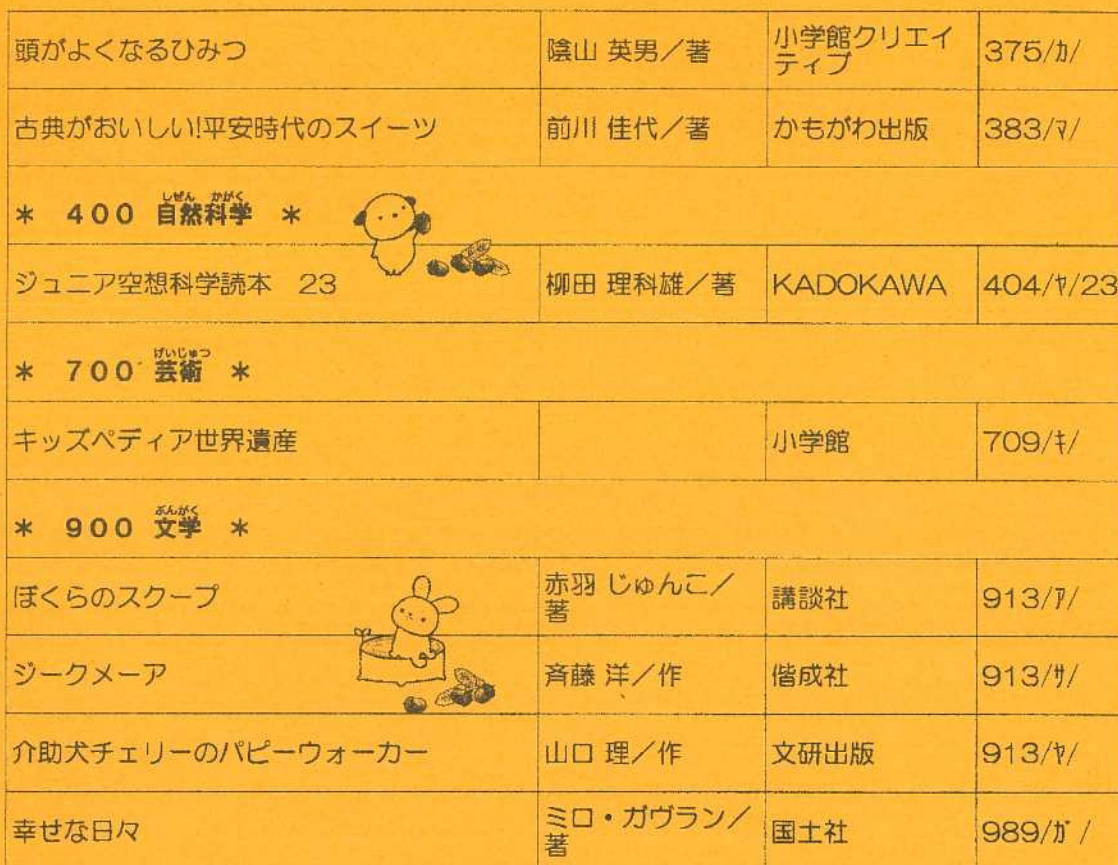 頭がよくなるひみつ 陰山 英男／著 小学館クリエイティブ 375/ｶ/
古典がおいしい!平安時代のスイーツ 前川 佳代／著 かもがわ出版 383/ﾏ/
しぜん かがく
＊ 400 自然科学 ＊
ジュニア空想科学読本 23 柳田 理科雄／著 KADOKAWA 404/ﾔ/23
げいじゅつ
＊ 700 芸術 ＊
キッズペディア世界遺産 小学館 709/ｷ/
ぶんがく
＊ 900 文学 ＊
ぼくらのスクープ 赤羽 じゅんこ／著 講談社 913/ｱ/
ジークメーア 斉藤 洋／作 偕成社 913/ｻ/
介助犬チェリーのパピーウォーカー 山口 理／作 文研出版 913/ﾔ/
幸せな日々 ミロ・ガヴラン／著 国土社 989/ｶﾞ/